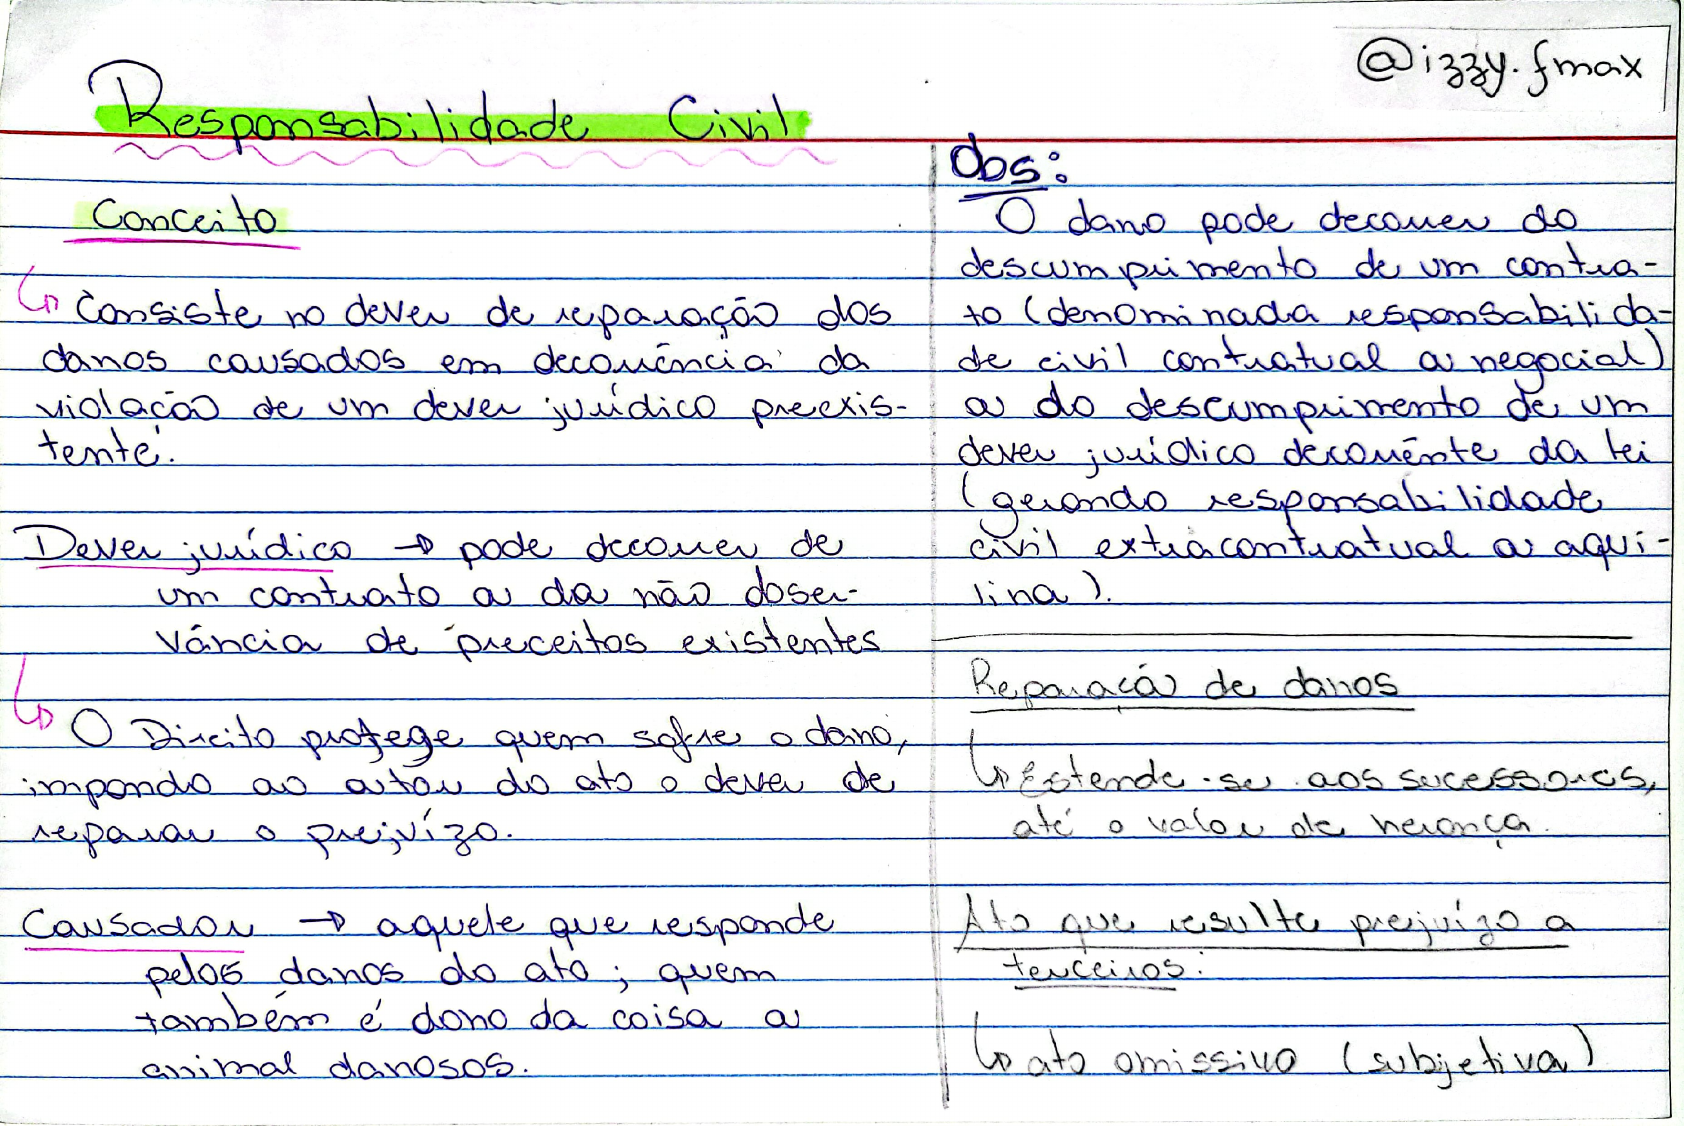 @izzy.fmax
Responsabilidade Civil
Conceito
↳ Consiste no dever de reparação dos
danos causados em decorrência da
violação de um dever jurídico preexis-
tente.
Dever jurídico → pode decorrer de
um contrato ou da não obser-
vância de preceitos existentes
↳ O Direito protege quem sofre o dano,
impondo ao autor do ato o dever de
reparar o prejuízo.
Causador → aquele que responde
pelos danos do ato; quem
também é dono da coisa ou
animal danosos.
Obs:
O dano pode decorrer do
descumprimento de um contra-
to (denominada responsabilida-
de civil contratual ou negocial)
ou do descumprimento de um
dever jurídico decorrênte da lei
(gerando responsabilidade
civil extracontratual ou aqui-
lina).
Reparação de danos
↳ Estende-se aos sucessores,
até o valor da herança.
Ato que resulte prejuízo a
terceiros:
↳ ato omissivo (subjetiva)